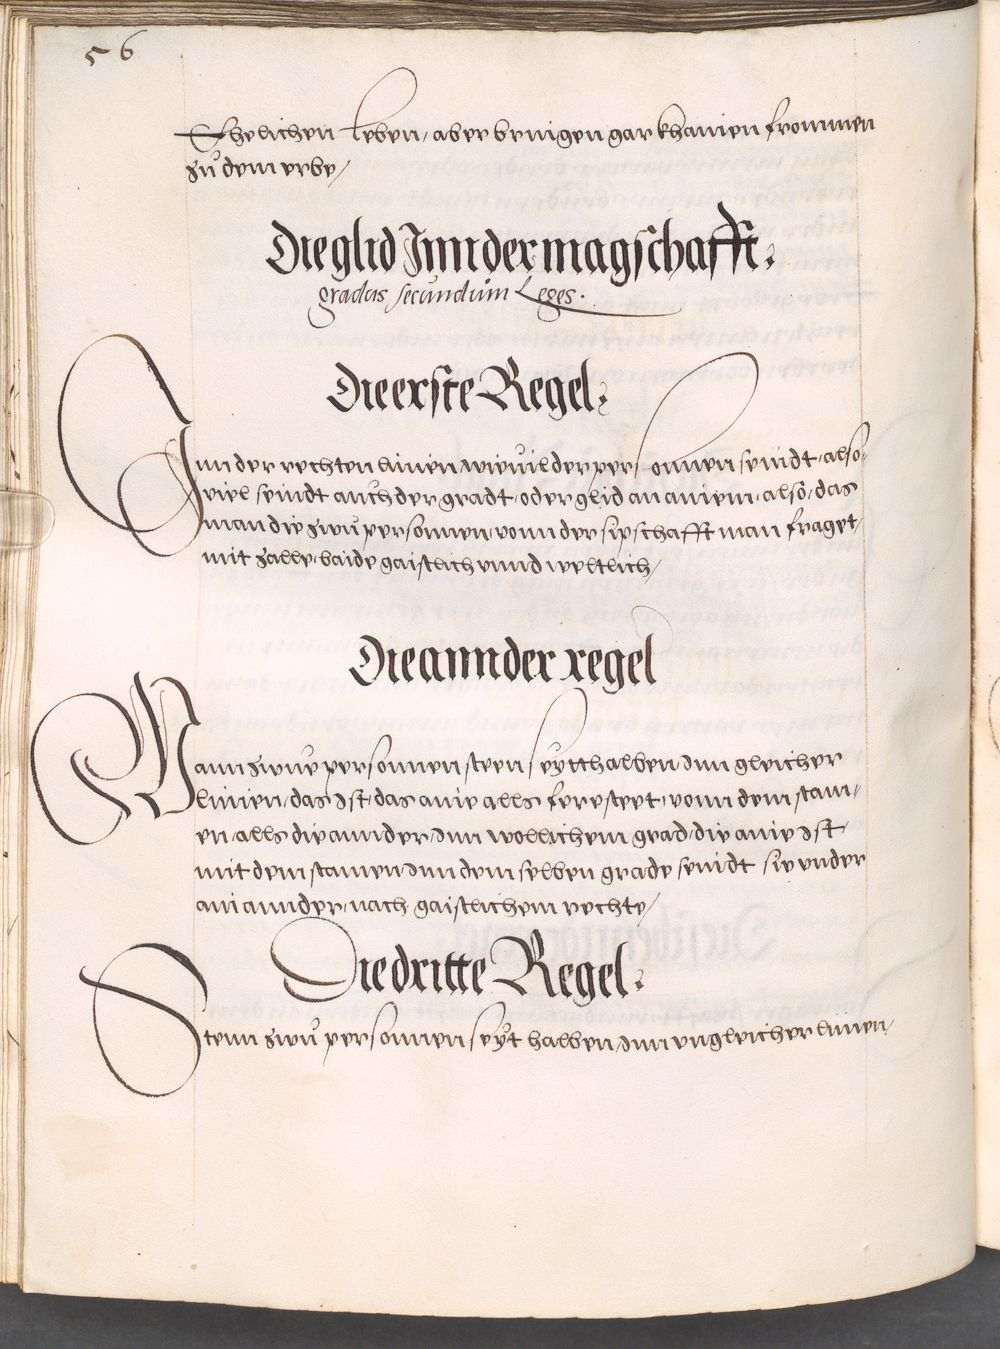 56
Ehelichen leben, aber bringen gar khainen frommen
zu dem erbe /
Die glid Inn der magschafft.
gradus secundum Leges.
Die erste Regel.
Inn der rechten linien wie vil der personnen seindt, also
viel seindt auch der gradt, oder glid an ainem, also, das
man die zwu personnen, vonn der sipschafft man fraget,
mit zalle, baide gaistlich vnnd weltlich /
Die annder regel
Wann zwue personnen steen seytthalben, Inn gleicher
linien, das Ist, das anie alls fere steet, vonn dem stam,
en, alls die annder, Inn wollichem grad, die anie Ist,
mit dem stamen, Inn dem selben grade seindt sie vnder
ain annder, nach gaistlichem rechte /
Die dritte Regel.
Stenn zwu personnen seyt halben, Inn vngleicher linien,